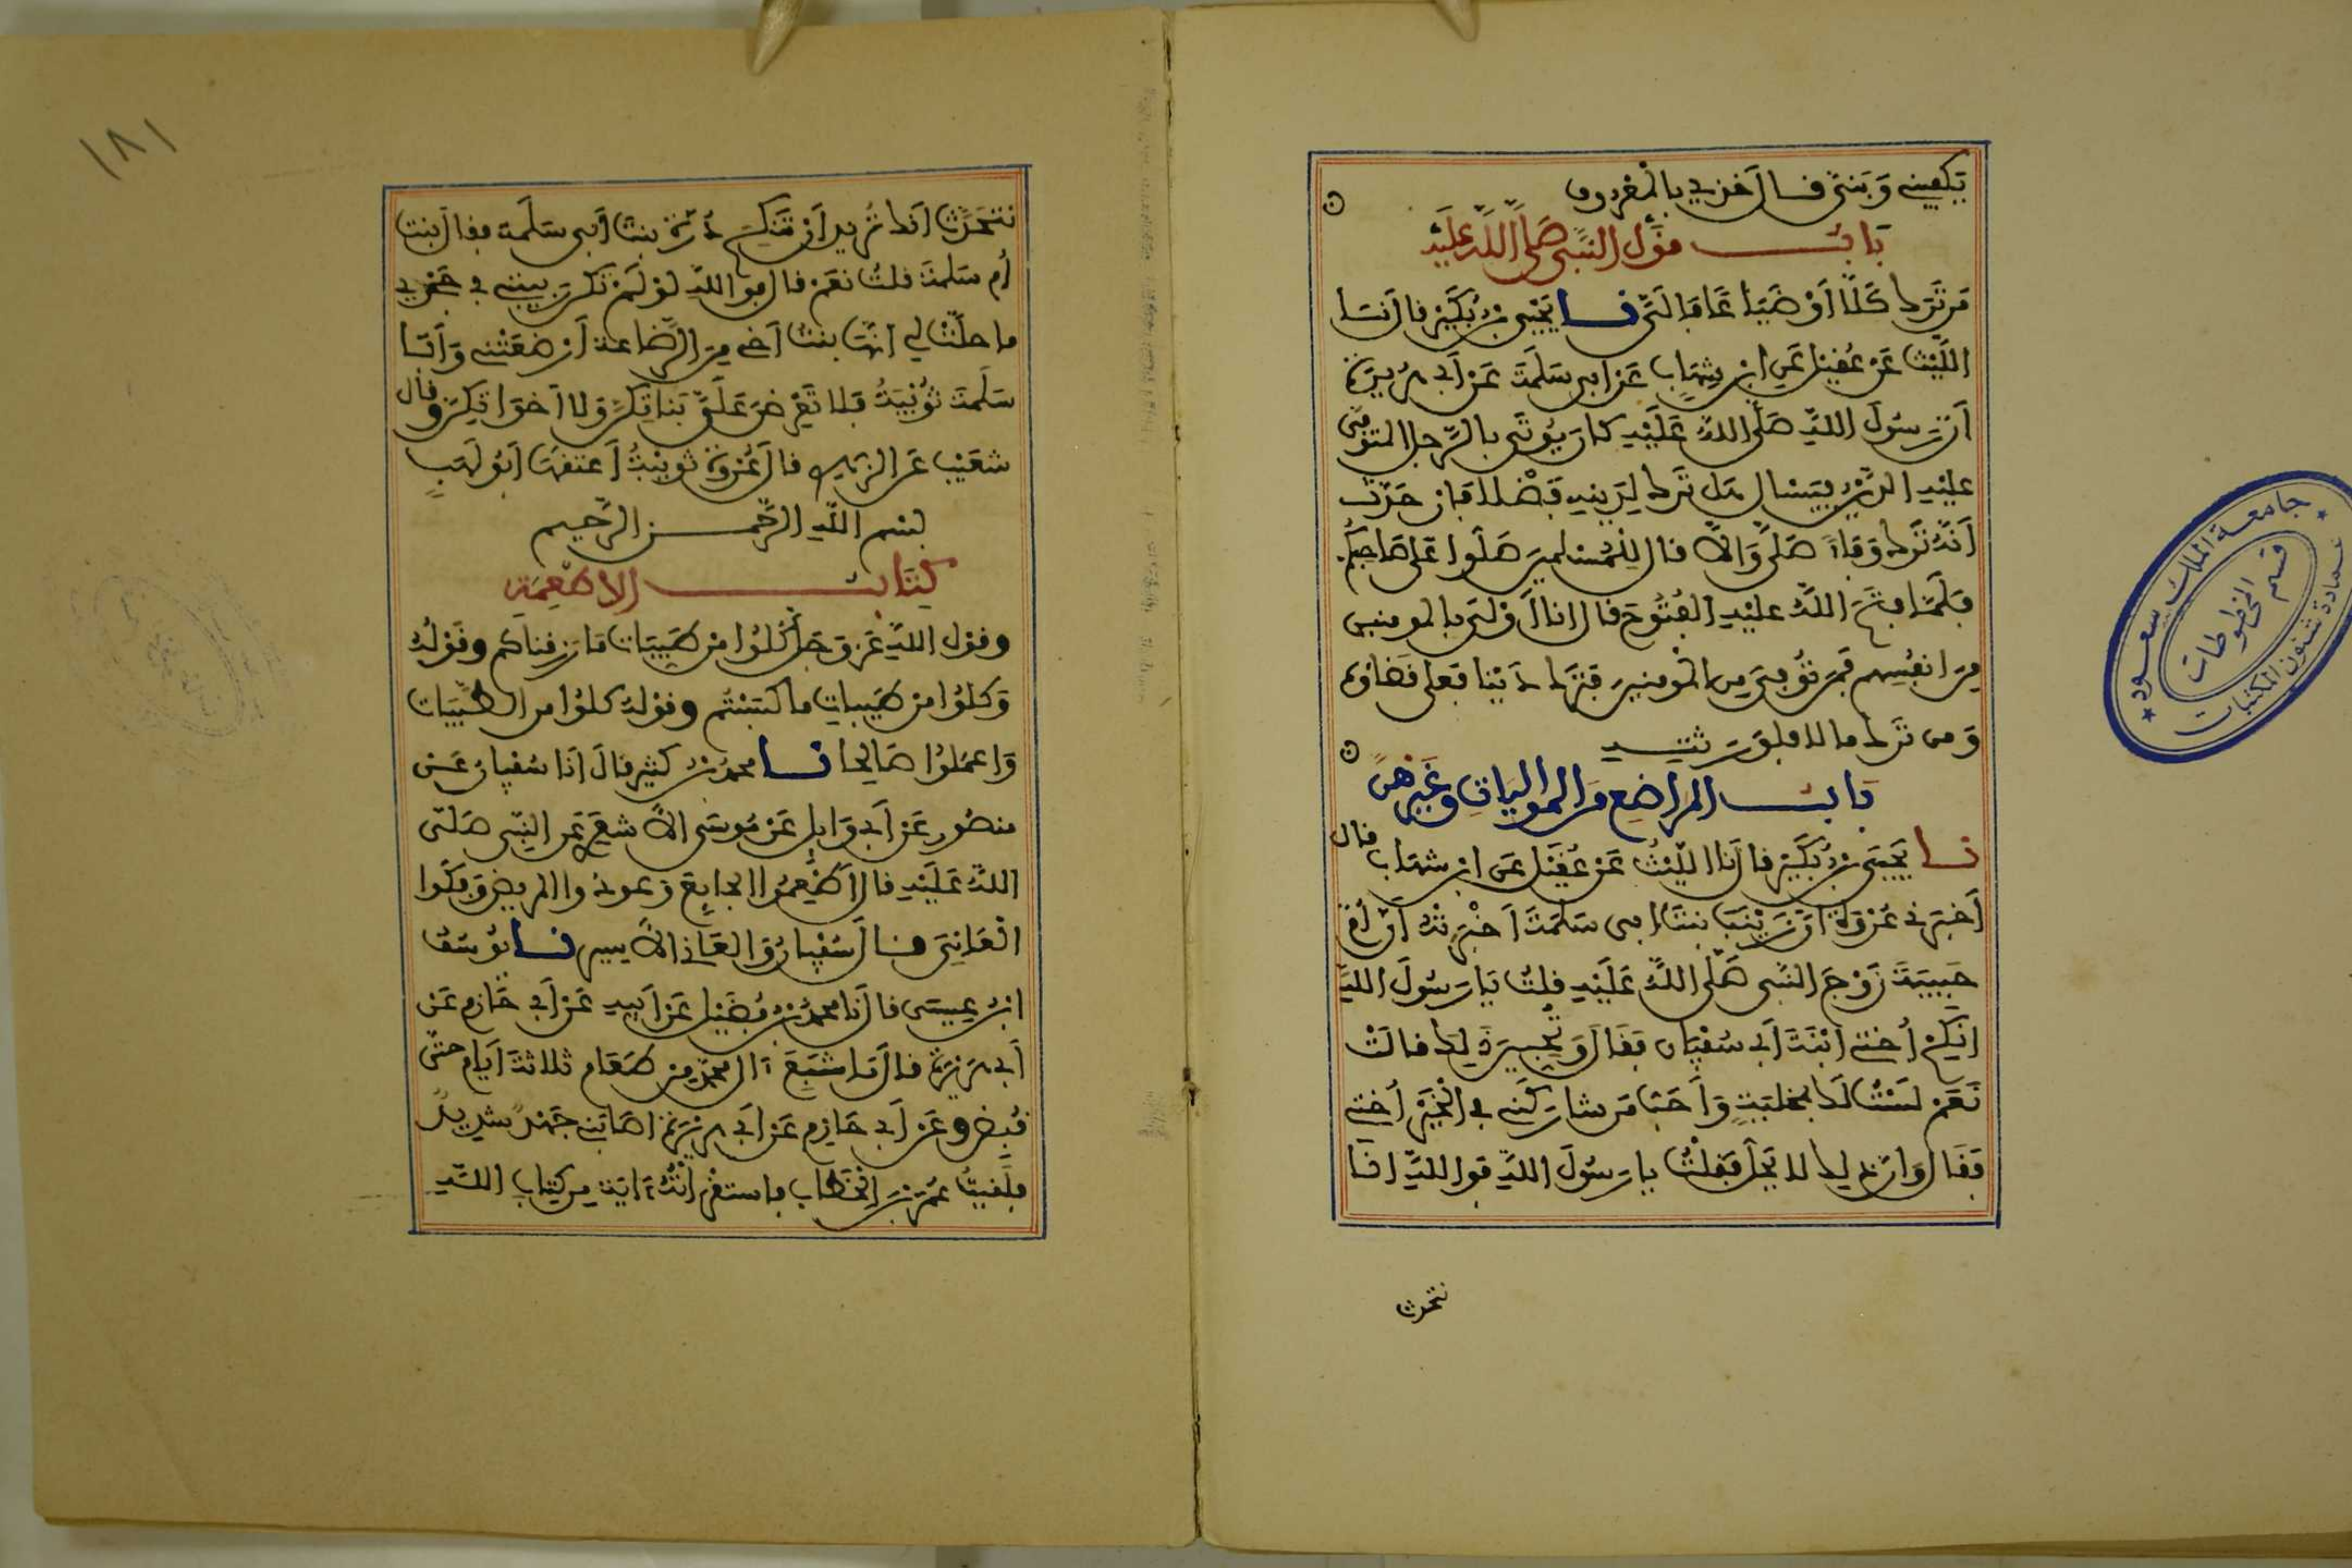 يكفيني وبنيّ قال خذي بالمعروف
باب قول النبي صلى الله عليه
من ترك كلّا أو ضياعا فإليّ نا يحيى بن بكير قال نا
الليث عن عقيل عن ابن شهاب عن أبي سلمة عن أبي هريرة
أن رسول الله صلى الله عليه كان يوتى بالرجل المتوفى
عليه الدين فيسال هل ترك لدينه فضلا فإن حدث
أنه ترك وفاء صلى وإلا قال للمسلمين صلوا على صاحبكم
فلما فتح الله عليه الفتوح قال انا أولى بالمومنين
من انفسهم فمن توفي من المومنين فترك دينا فعلي قضاؤه
ومن ترك مالا فلورثته
باب المراضع من المواليات وغيرهن
نا يحيى بن بكير قال نا الليث عن عقيل عن ابن شهاب قال
أخبرني عروة أن زينب بنت ابي سلمة أخبرته أن أم
حبيبة زوج النبي صلى الله عليه قلت يا رسول الله
انكح أختي ابنة أبي سفيان فقال وتحبين ذلك قالت
نعم لست لك بمخلية وأحب من شاركني في الخير أختي
فقال وإن ذلك لا يحل فقلت يا رسول الله فوالله انا
نتحدث
١٨١
نتحدث أنك تريد أن تنكح درة بنت أبي سلمة فقال بنت
أم سلمة قلت نعم قال فوالله لو لم تكن ربيبتي في حجري
ما حلت لي انها بنت أخي من الرضاعة أرضعتني وأبا
سلمة ثويبة فلا تعرضن علي بناتكن ولا أخواتكن وقال
شعيب عن الزهري قال عروة ثويبة أعتقها أبو لهب
بسم الله الرحمن الرحيم
كتاب الاطعمة
وقول الله عز وجل كلوا من طيبات ما رزقناكم وقوله
وكلوا من طيبات ما كسبتم وقوله كلوا من الطيبات
واعملوا صالحا نا محمد بن كثير قال انا سفيان عن
منصور عن أبي وايل عن موسى الأشعري عن النبي صلى
الله عليه قال أطعموا الجايع وعودوا المريض وفكوا
العاني قال سفيان والعاني الأسير نا يوسف
ابن عيسى قال نا محمد بن فضيل عن أبيه عن أبي حازم عن
أبي هريرة قال ما شبع آل محمد من طعام ثلاثة أيام حتى
قبض وعن أبي حازم عن أبي هريرة اصابني جهد شديد
فلقيت عمر بن الخطاب فاستقرأته آية من كتاب الله
جامعة الملك سعود
قسم المخطوطات
عمادة شئون المكتبات